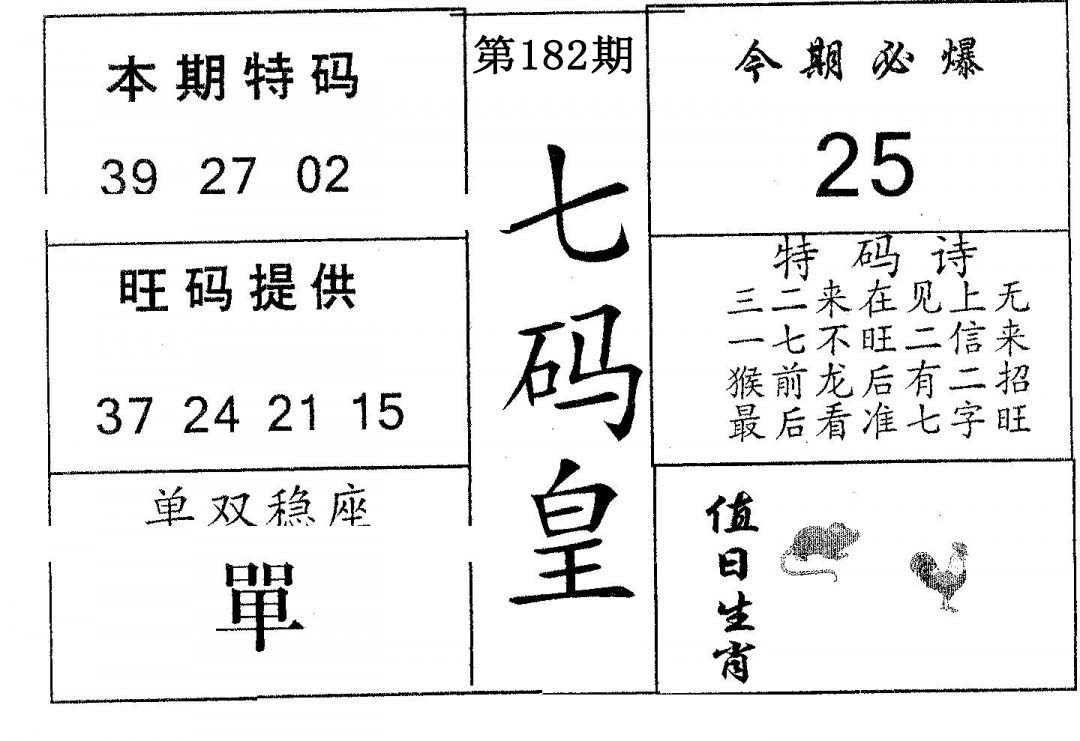 本期特码
39 27 02
旺码提供
37 24 21 15
单双稳座
單
第182期
七码皇
今期必爆
25
特码诗
三二来在见上无
一七不旺二信来
猴前龙后有二招
最后看准七字旺
值日生肖